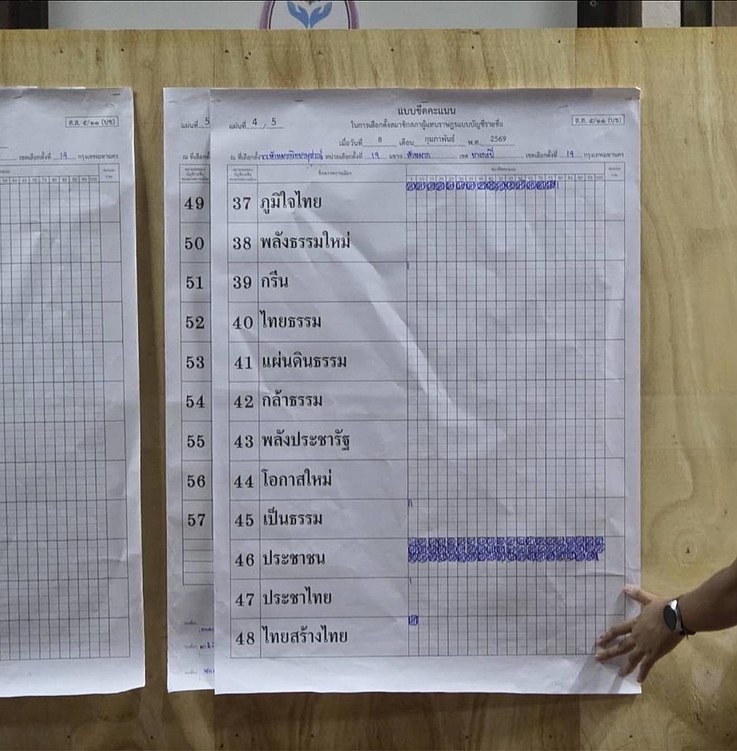 ส.ส. ๕/๑๑ (บช)
เขตเลือกตั้งที่ 19 กรุงเทพมหานคร
แผ่นที่ 5
49
50
51
52
53
54
55
56
57
แบบขีดคะแนน
แผ่นที่ 4 / 5
ในการเลือกตั้งสมาชิกสภาผู้แทนราษฎรแบบบัญชีรายชื่อ
ส.ส. ๕/๑๑ (บช)
เมื่อวันที่ 8 เดือน กุมภาพันธ์ พ.ศ. 2569
ณ ที่เลือกตั้ง หน่วยเลือกตั้งที่ 19 แขวง หัวหมาก เขต บางกะปิ เขตเลือกตั้งที่ 19 กรุงเทพมหานคร
37 ภูมิใจไทย
38 พลังธรรมใหม่
39 กรีน
40 ไทยธรรม
41 แผ่นดินธรรม
42 กล้าธรรม
43 พลังประชารัฐ
44 โอกาสใหม่
45 เป็นธรรม
46 ประชาชน
47 ประชาไทย
48 ไทยสร้างไทย